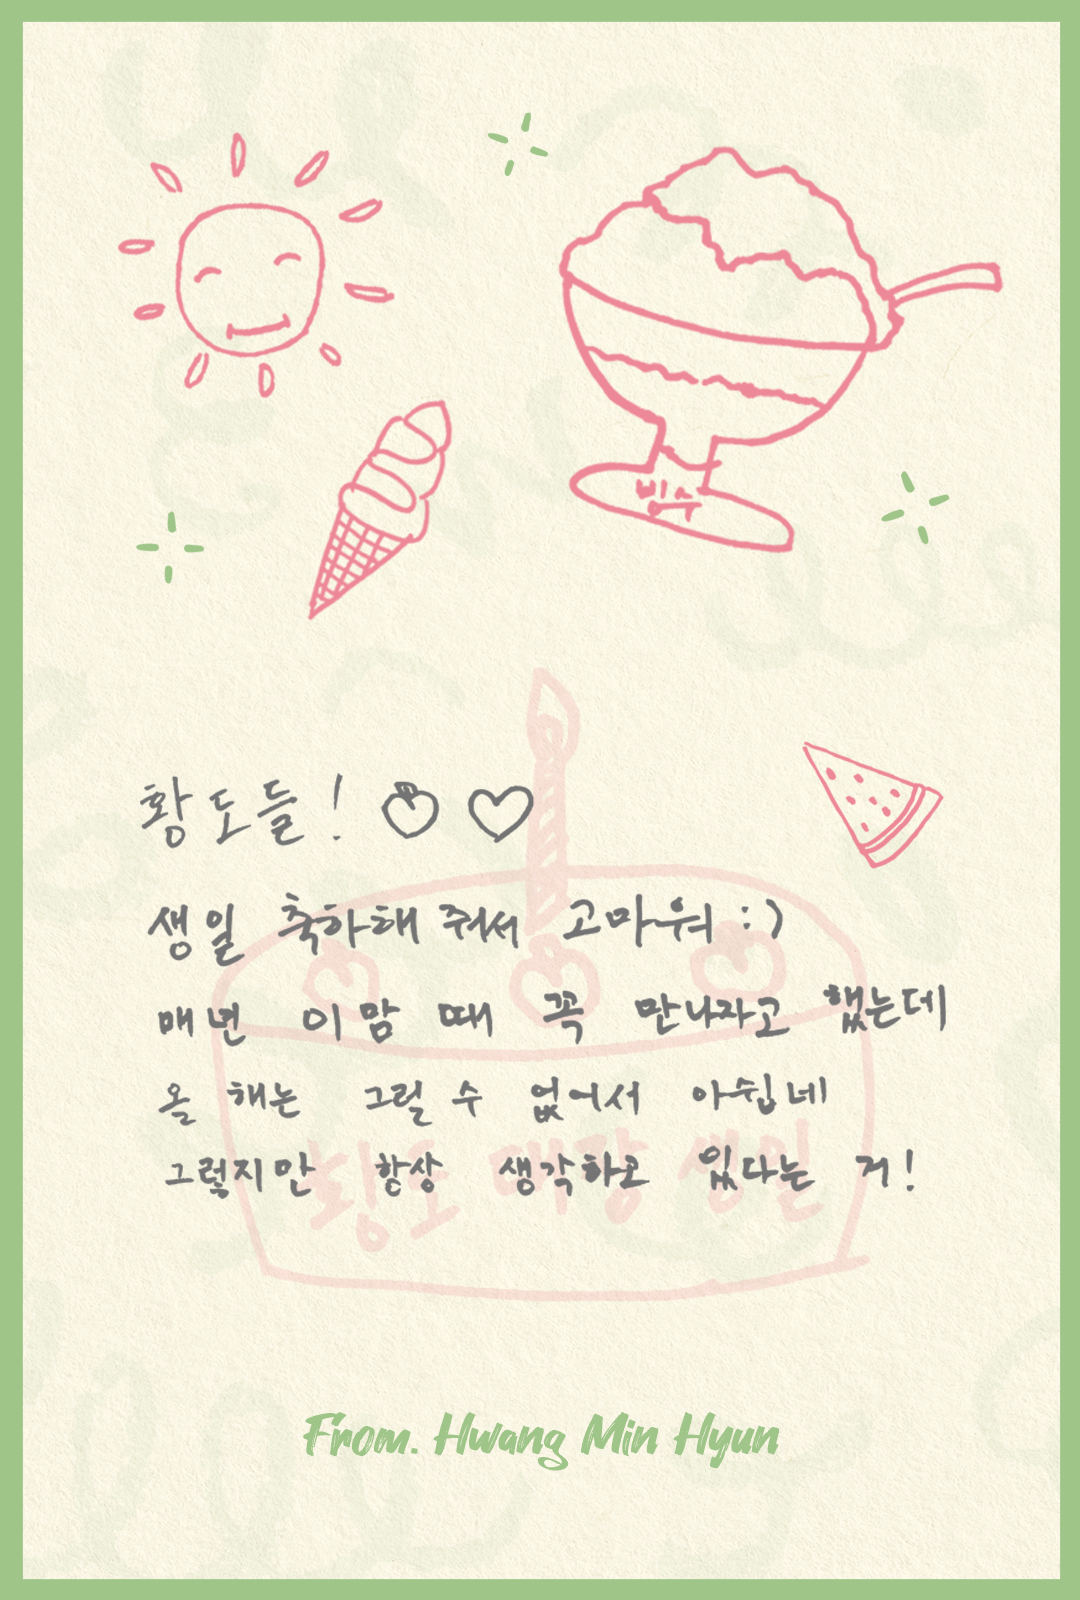 빙수
황도들!
생일 축하해 줘서 고마워 :)
매년 이맘 때 꼭 만나자고 했는데
올 해는 그럴 수 없어서 아쉽네
그렇지만 항상 생각하고 있다는 거!
황도 매랑 생일
From. Hwang Min Hyun